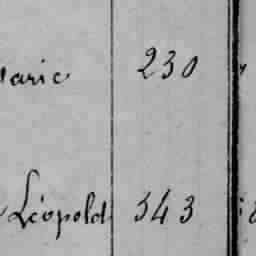 Marie 230
Léopold 343